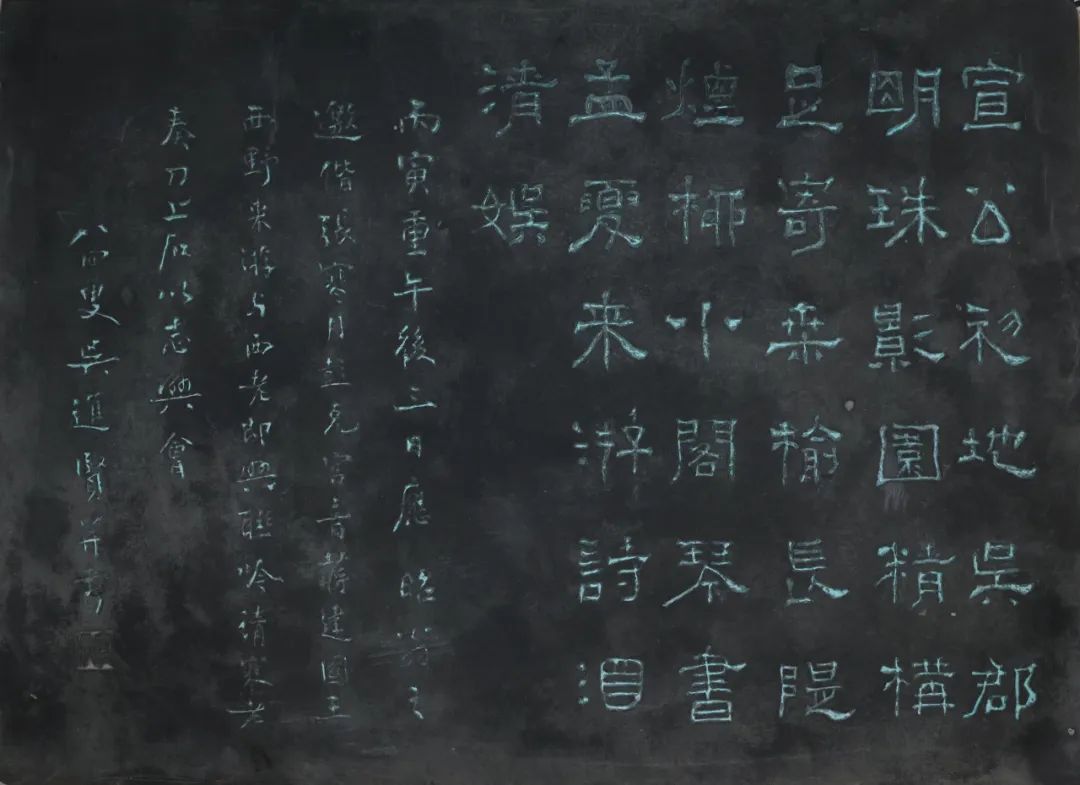 宣公初地吳郡
明珠影園精構
足寄桒榆長隄
煙柳小閣琴書
孟夏来游詩酒
清娛
丙寅重午後三日應昭之
邀偕張寒月克蔣建國王
西野来游与西老即興聯吟請寒老
奏刀上石以志興會
八四叟吳進賢并書